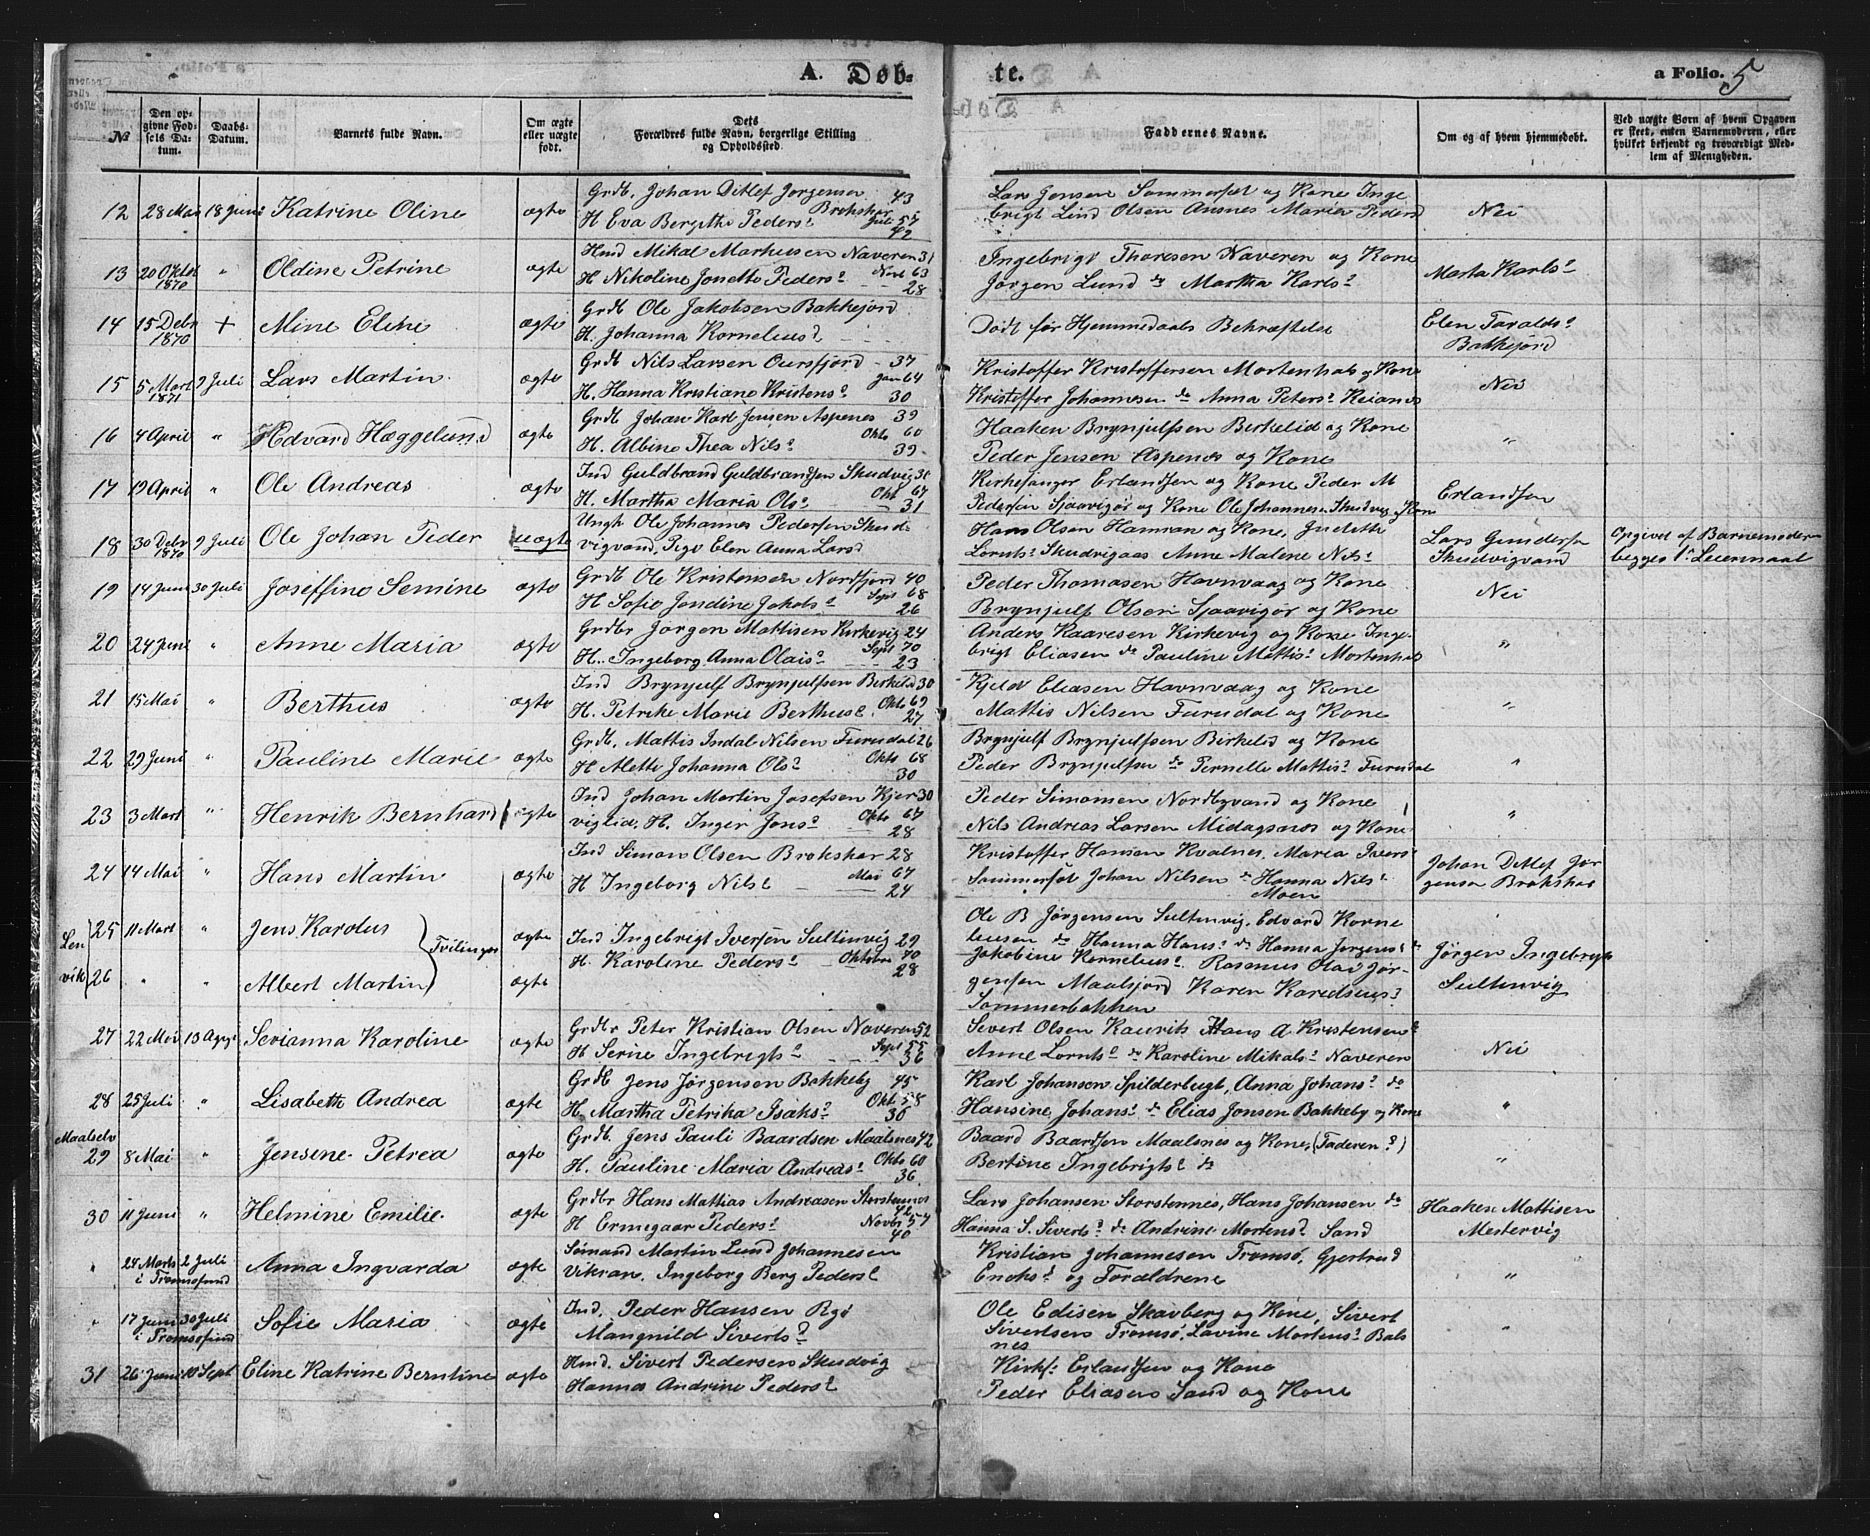 A. Døb-
te.
a Folio. 5
№
Den opgivne Fødsels Datum.
Daabs-Datum.
Barnets fulde Navn.
Om ægte eller uægte født.
Dets Forældres fulde Navn, borgerlige Stilling og Opholdssted.
Faddernes Navne.
Om og af hvem hjemmedøbt.
Ved uægte Børn af hvem Opgaven er skeet, enten Barnemoderen, eller hvilket bekjendt og troværdigt Medlem af Menigheden.
12 28 Mai 18 Juni Katrine Oline ægte Grdb. Johan Ditlef Jørgensen 43
H Eva Bergithe Peders? Brokskar Juli 55 42
Lars Jensen Sommerset og Kone Inge
brigt Lind Olsen Ansnes Maria Pedersd Nei
13 20 Oktob 1870 " Oldine Petrine ægte Hmd Mikal Markusen Naveren 31
H Nikoline Jonette Peders? Novb 63 28
Ingebrigt Thoresen Naveren og Kone
Jørgen Lund do Martha Karls? Marta Karls?
14 15 Debr 1870 + Mine Eline ægte Grdb Ole Jakobsen Bakkejord
H. Johanna Kornelius?
Dødt før Hjemmedaabs Bekræftelse Elen Taralds?
Bakkejord
15 5 Mart 1871 9 Juli Lars Martin ægte Grdb Nils Larsen Oursfjord 37
H. Hanna Kristiane Kristens? Jan 64 30
Kristoffer Kristoffersen Mortenhals og Kone
Kristoffer Johannesen do Anna Peters? Keianes Nei
16 4 April " Hedvard Hæggelund ægte Grdb Johan Karl Jensen Aspenes 39
H. Albine Thea Nils? Okto 60 39
Haaken Brynjulfsen Birkelid og Kone
Peder Jensen Aspenes og Kone "
17 19 April " Ole Andreas ægte Ind Guldbrand Guldbrandsen Skudvig 31
H. Martha Maria Ols? Okt 67 31
Kirkesanger Erlandsen og Kone Peder M
Pedersen Sjaavigør og Kone Ole Johannesen Skudvig og Kone Erlandsen
18 30 Debr 1870 9 Juli Ole Johan Peder uægte Ungk Ole Johannes Pedersen Skud
vigvand, Pige Elen Anna Larsd
Hans Olsen Hamran og Kone, Judith
Lornts? Skudvigaas Anne Malene Nils? Lars Gundersen
Skudvigvand
Opgivet af Barnemoderen
begges 1ste Leiermaal
19 14 Juni 30 Juli Joseffine Semine ægte Grdb Ole Kristensen Nordfjord 40
H Sofie Jondine Jakobs? Sept 68 26
Peder Thomasen Havnvaag og Kone
Brynjulf Olsen Sjaavigør og Kone Nei
20 24 Juni " Anne Maria ægte Grdbr Jørgen Mattisen Kirkevig 24
H. Ingeborg Anna Olais? Sept 70 23
Anders Kaaresen Kirkevig og Kone Inge-
brigt Eliasen do Pauline Mattis? Mortenhals "
21 15 Mai " Berthus ægte Ind Brynjulf Brynjulfsen Birkelid 30
H. Petrike Marie Berthus? Okto 69 27
Kjeld Eliasen Havnvaag og Kone
Mattis Nilsen Furudal og Kone "
22 29 Juni " Pauline Marie ægte Grdb. Mattis Indal Nilsen Furudal 26
H Alette Johanna Ols? Okto 68 30
Brynjulf Brynjulfsen Birkelid og Kone
Peder Brynjulfsen do Pernelle Mattis? Furudal "
23 3 Mart " Henrik Bernhard ægte Ind Johan Martin Josefsen Kjer 30
viglid, H. Inger Jons? Okto 67 28
Peder Simonsen Nordbyvand og Kone
Nils Andreas Larsen Midagsnes og Kone "
24 14 Mai " Hans Martin ægte Ind Simon Olsen Brokskar 28
H Ingeborg Nils? Mai 67 24
Kristoffer Hansen Kvalnes, Maria Ivers
Sommerset Johan Nilsen do Hanna Nils?
Moen
Johan Detlef Jør
gensen Brokskar
Len
vik
25 11 Mart " Jens Karolus Tvilinger ægte Ind Ingebrigt Iversen Sultinvig 29
H. Karoline Peders? Oktober 70 28
26 " " Albert Martin ægte
Ole B Jørgensen Sultinvig, Edvard Korne
liusen do Hanna Hans? do Hanna Jørgens? do
Jakobine Kornelius? Rasmus Olai Jør-
gensen Maalsjord Karen Karelius?
Sommerbakken
Jørgen Ingebrigt
Sultinvig
27 22 Mai 13 Augst Serianna Karoline ægte Grdbr Peter Kristian Olsen Naveren 52
H Serine Ingebrigts? Sept 55 36
Sivert Olsen Kaurits Hans A Kristensen?
Anne Lornts? do Karoline Mikals? Naveren Nei
28 25 Juli " Lisabeth Andrea ægte Grdb Jens Jørgensen Bakkeby 45
H. Martha Petrika Isaks? Okt 58 30
Karl Johansen Spilderbugt, Anna Johans? do
Hansine Johans? do Elias Jonsen Bakkeby og Kone "
Maalselv
29 8 Mai " Jensine Petrea ægte Grdb. Jens Pauli Baardsen Maalsnes 42
H. Pauline Maria Andreas? Okto 60 36
Baard Baardsen Maalsnes og Kone, (Faderen?)
Bertine Ingebrigts? do "
30 11 Juni " Helmine Emilie ægte Grdbr Hans Mattias Andreasen Storstennes 42
H Ermegaar Peders? Novbr 57 40
Lars Johansen Storstennes, Hans Johansen do
Hanna S. Siverts? do Andrine Mortens? Sand
Haaken Mattisen
Mestervig
" 24 Marts 2 Juli i Tromsøsund Anna Ingvarda ægte Simand Martin Lund Johannesen
Vikran, Ingeborg Berg Peders?
Kristian Johannesen Tromsø, Gjertrud
Enoks? og Forældrene "
" 17 Juni 30 Juli i Tromsøsund Sofie Maria ægte Ind. Peder Hansen Ryø
Mangnild Siverts?
Ole Edisen Skavberg og Kone, Sivert
Sivertsen Tromsø, Lavine Mortens? Bals
nes "
31 26 Juni 10 Sept Eline Katrine Berntine ægte Hmd. Sivert Pedersen Skudvig
Hanna Andrine Peders?
Kirks. Erlandsen og Kone
Peder Eliasen Sand og Kone